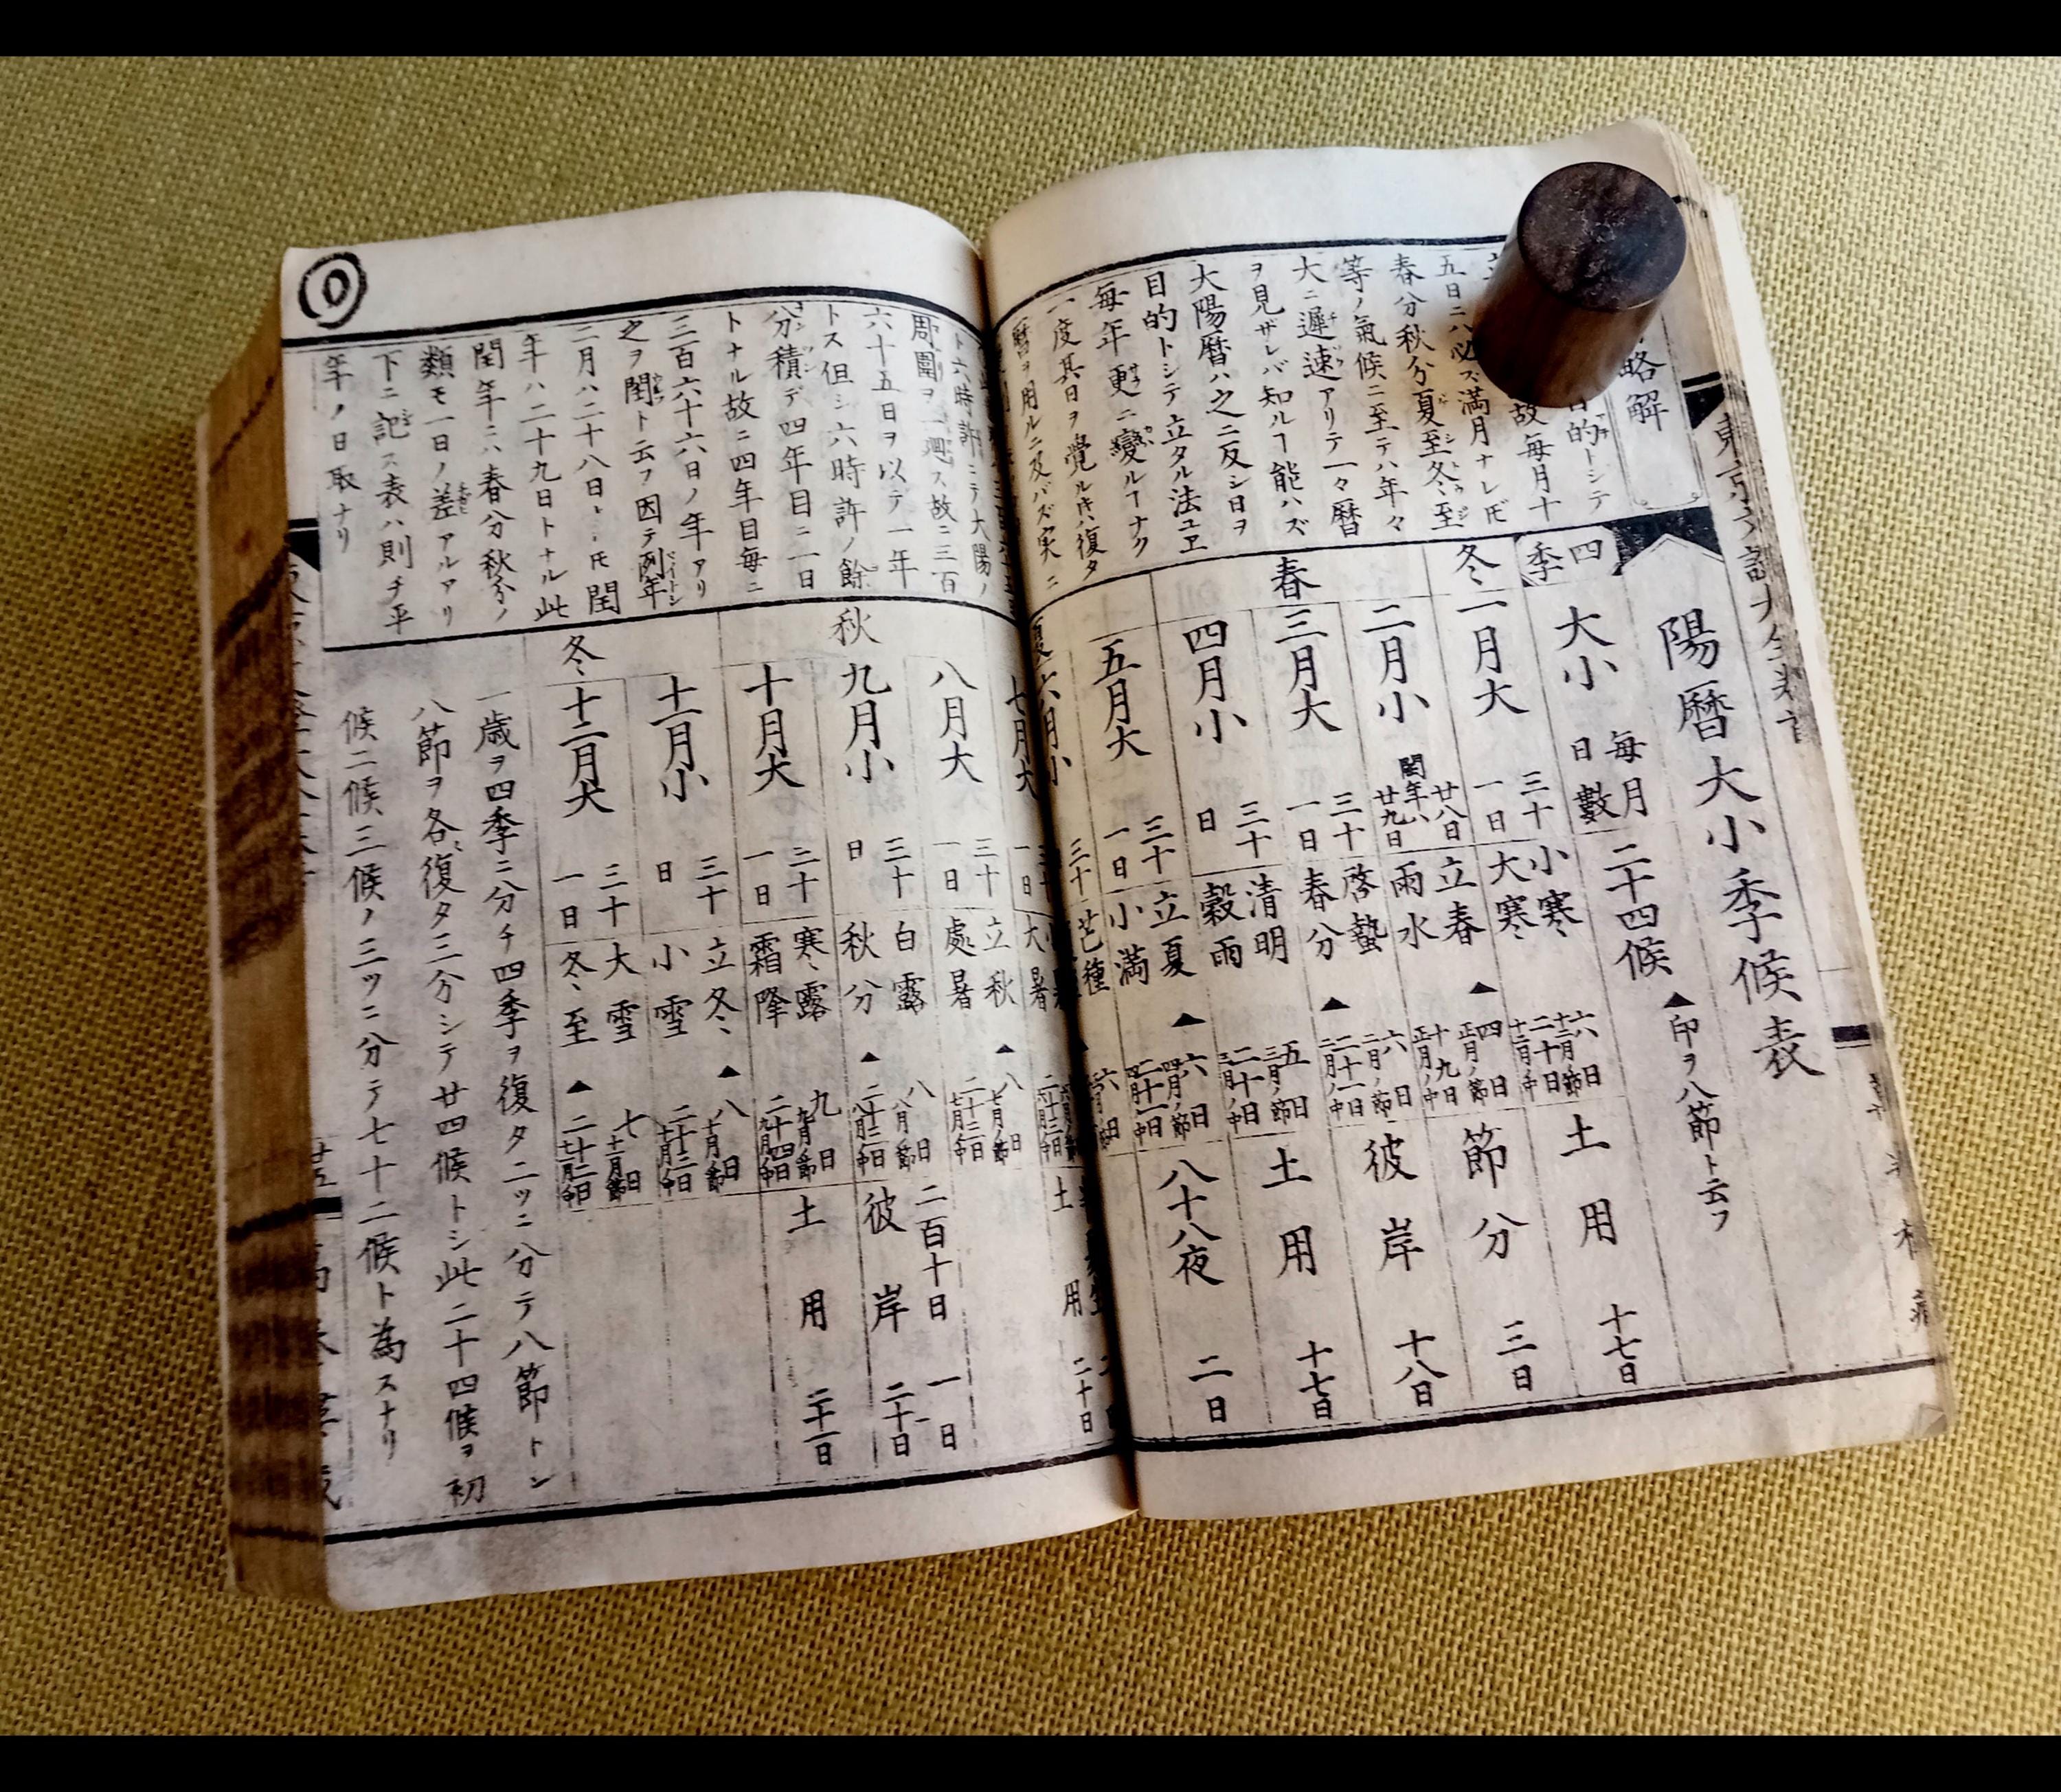 略解
目的トシテ
故毎月十
五日ニハ必ス満月ナレ𪜈
春分秋分夏至冬至
等ノ氣候ニ至テハ年々
大ニ遲速アリテ一々暦
ヲ見ザレバ知ルヿ能ハズ
大陽暦ハ之ニ反シ日ヲ
目的トシテ立タル法ユヱ
毎年更ニ變ルヿナク
一度其日ヲ覺ル𪜈ハ復タ
暦ヲ用ルニ及バズ実ニ
陽暦大小季候表
▲印ヲ八節ト云フ
四季
大小
毎月日數
二十四候
冬
一月大
三十一日
小寒
大寒
六日
十二月ノ節
二十日
十二月ノ中
土用
十七日
春
二月小
廿八日
閏年ハ廿九日
立春
雨水
▲
四日
正月ノ節
十九日
正月ノ中
節分
三日
三月大
三十一日
啓蟄
春分
▲
六日
二月ノ節
二十一日
二月ノ中
彼岸
十八日
四月小
三十日
清明
穀雨
五日
三月ノ節
二十日
三月ノ中
土用
十七日
五月大
三十一日
立夏
小満
▲
六日
四月ノ節
二十一日
四月ノ中
八十八夜
二日
夏
六月小
三十
芒種
六日
ト六時許ニテ大陽ノ
周圍ヲ一廻ス故ニ三百
六十五日ヲ以テ一年
トス但シ六時許ノ餘
分積デ四年目ニ一日
トナル故ニ四年目毎ニ
三百六十六日ノ年アリ
之ヲ閏ト云フ因テ列年
二月ハ二十八日ト𪜈閏
年ハ二十九日トナル此
閏年ニハ春分秋分ノ
類モ一日ノ差アルアリ
下ニ記ス表ハ則チ平
年ノ日取ナリ
七月大
一日
大暑
二十三日
六月ノ中
土用
二十日
秋
八月大
三十一日
立秋
處暑
▲
八日
七月ノ節
二十三日
七月ノ中
二百十日
一日
九月小
三十日
白露
秋分
▲
八日
八月ノ節
二十三日
八月ノ中
彼岸
二十日
十月大
三十一日
寒露
霜降
九日
九月ノ節
二十四日
九月ノ中
土用
二十一日
冬
十一月小
三十日
立冬
小雪
▲
八日
十月ノ節
二十三日
十月ノ中
十二月大
三十一日
大雪
冬至
▲
七日
十一月ノ節
二十二日
十一月ノ中
一歳ヲ四季ニ分チ四季ヲ復タ二ツニ分テ八節トシ
八節ヲ各復タ三分シテ廿四候トシ此二十四候ヲ初
候二候三候ノ三ツニ分テ七十二候ト為スナリ
廿五